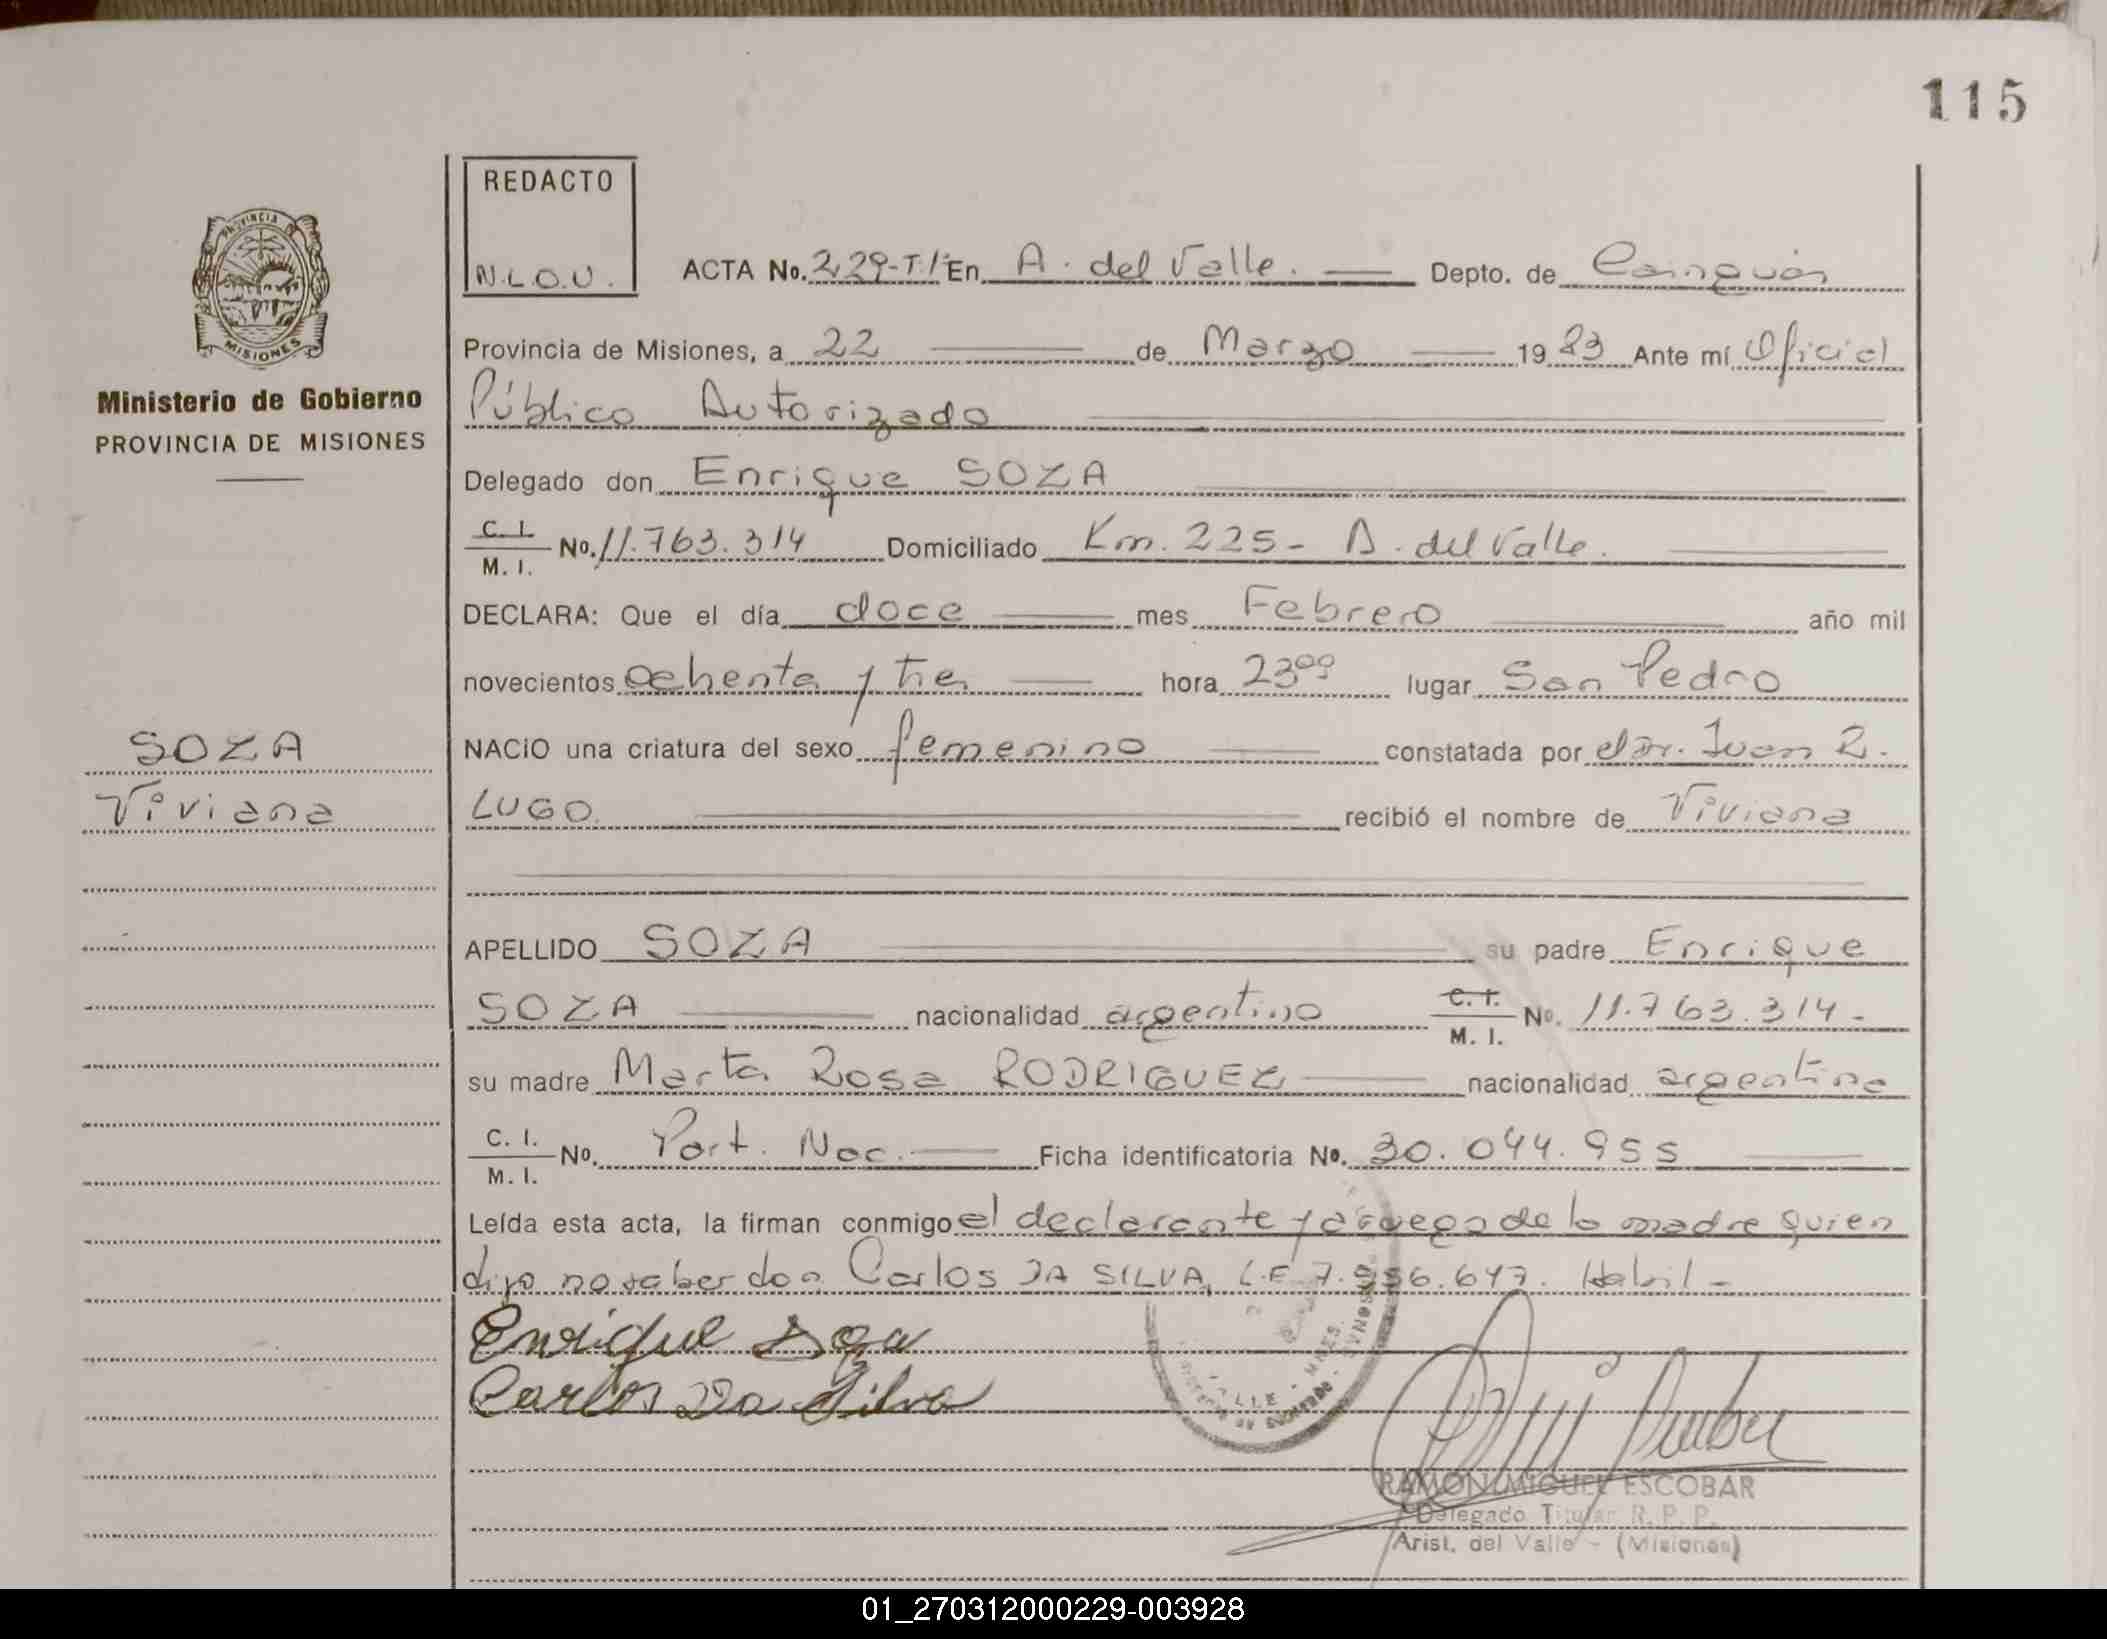 115
REDACTO
N.L.O.U.
PROVINCIA
MISIONES
Ministerio de Gobierno
PROVINCIA DE MISIONES
ACTA No. 229-T.I En A. del Valle. Depto. de Cainguás
Provincia de Misiones, a 22 de Marzo 1983 Ante mí Oficial
Público Autorizado
Delegado don Enrique SOZA
C. I. M. I. No. 11.763.314 Domiciliado Km. 225- A. del Valle.
DECLARA: Que el día doce mes Febrero año mil
novecientos ochenta y tres hora 23⁰⁰ lugar San Pedro
SOZA
Viviana
NACIO una criatura del sexo femenino constatada por el Dr. Juan R.
LUGO. recibió el nombre de Viviana
APELLIDO SOZA su padre Enrique
SOZA nacionalidad argentino C. I. M. I. No. 11.763.314-
su madre Marta Rosa RODRIGUEZ nacionalidad argentina
C. I. M. I. No. Part. Nac. Ficha identificatoria No. 30.044.955
Leída esta acta, la firman conmigo el declarante y a ruego de la madre quien
dijo no saber don Carlos DA SILVA, L.E. Habil-
Enrique Soza
Carlos Da Silva
RAMON MIGUEL ESCOBAR
Delegado Titular R. P. P.
Arist. del Valle - (Misiones)
01_270312000229-003928